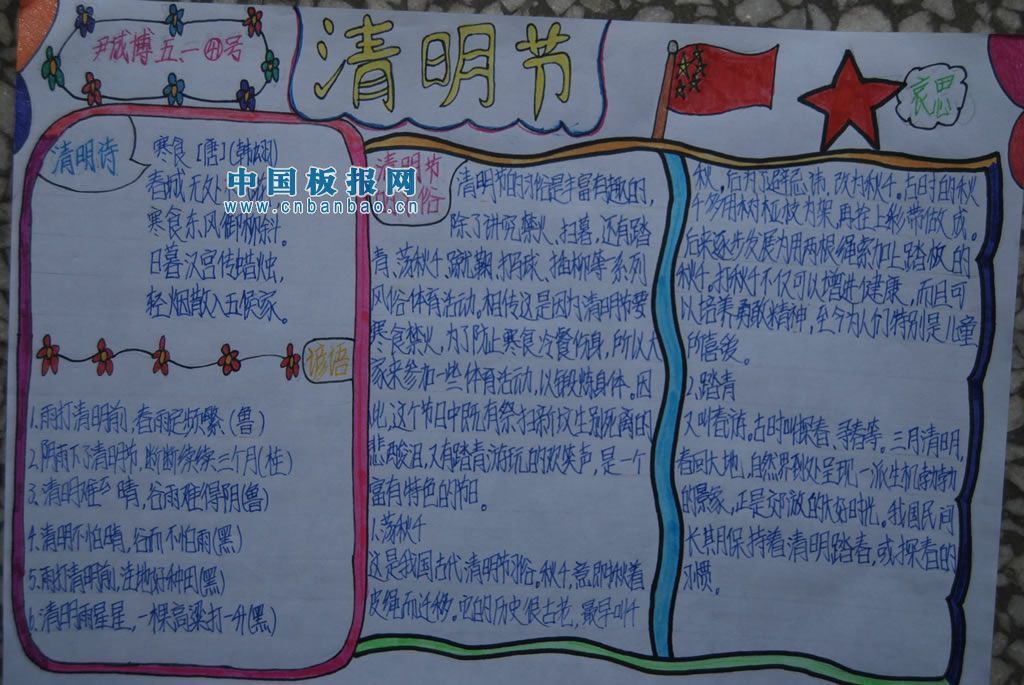 尹成博五、一㊹号
清明节
哀思
清明诗
寒食[唐](韩翃)
春城无处
寒食东风御柳斜。
日暮汉宫传蜡烛,
轻烟散入五侯家。
中国板报网
www.cnbanbao.cn
谚语
1.雨打清明前,春雨定频繁(鲁)
2.阴雨下了清明节,断断续续三个月(桂)
3.清明难得晴,谷雨难得阴(鲁)
4.清明不怕晴,谷雨不怕雨(黑)
5.雨打清明前,洼地好种田(黑)
6.清明雨星星,一棵高粱打一升(黑)
清明节
俗
清明节的习俗是丰富有趣的,
除了讲究禁火、扫墓,还有踏
青、荡秋千、蹴鞠、打马球、插柳等系列
风俗体育活动。相传这是因为清明节要
寒食禁火,为了防止寒食冷餐伤身,所以大
家来参加一些体育活动,以锻炼身体。因
此,这个节日中既有祭扫新坟生别死离的
悲酸泪,又有踏青游玩的欢笑声,是一个
富有特色的节日。
1.荡秋千
这是我国古代清明节习俗。秋千,意即揪着
皮绳而迁移。它的历史很古老,最早叫千
秋。后为了避忌讳,改为秋千。古时的秋
千多用树桠枝为架,再拴上彩带做成。
后来逐步发展为用两根绳索加上踏板的
秋千。打秋千不仅可以增进健康,而且可
以培养勇敢精神,至今为人们特别是儿童
所喜爱。
2.踏青
又叫春游。古时叫探春、寻春等。三月清明,
春回大地,自然界到处呈现一派生机勃勃
的景象,正是郊游的大好时光。我国民间
长期保持着清明踏青,或探春的
习惯。